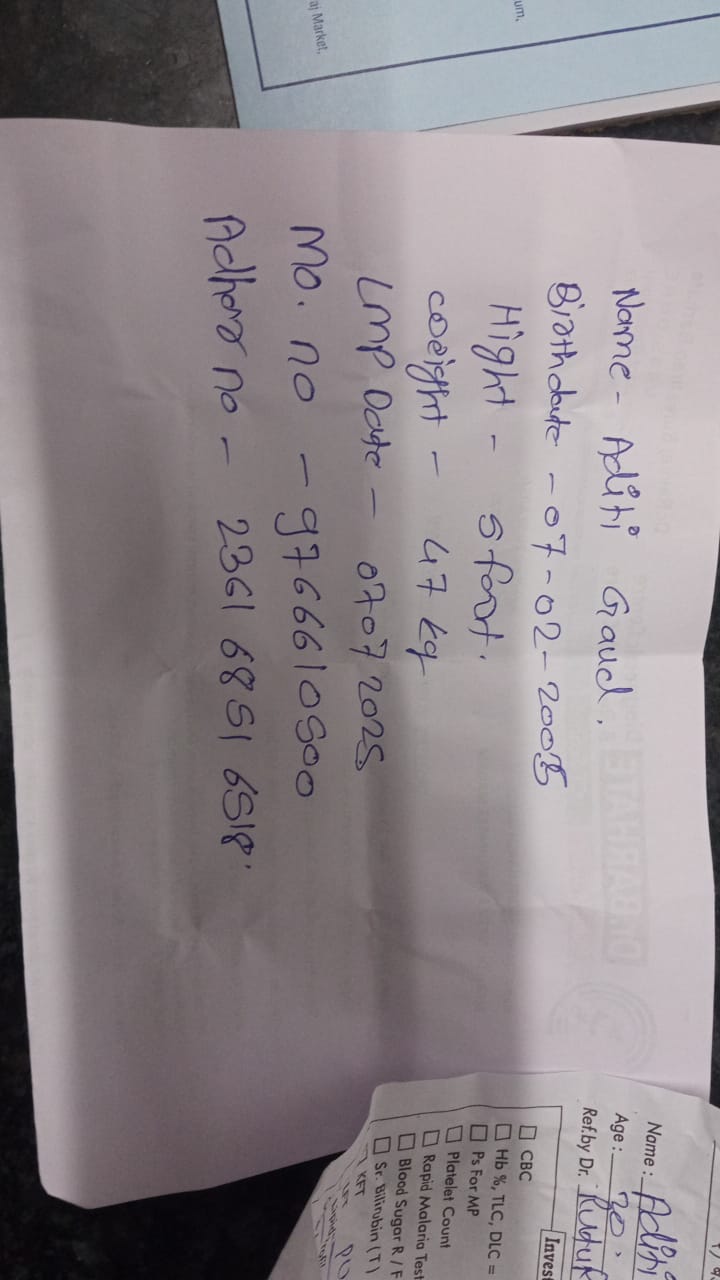 um,
aj Market,
Name - Aditi Gaud.
Birthdate - 07-02-2005
Hight - 5 foot.
weight - 47 kg
LMP Date - 07072025
Mo. no - 9766610500
Adhar no - 2361 6851 6518.
Name: Aditi
Age: 20.
Ref.by Dr.
Invest
CBC
Hb %, TLC, DLC =
Ps For MP
Platelet Count
Rapid Malaria Test
Blood Sugar R / F
Sr. Bilirubin (T)
KFT